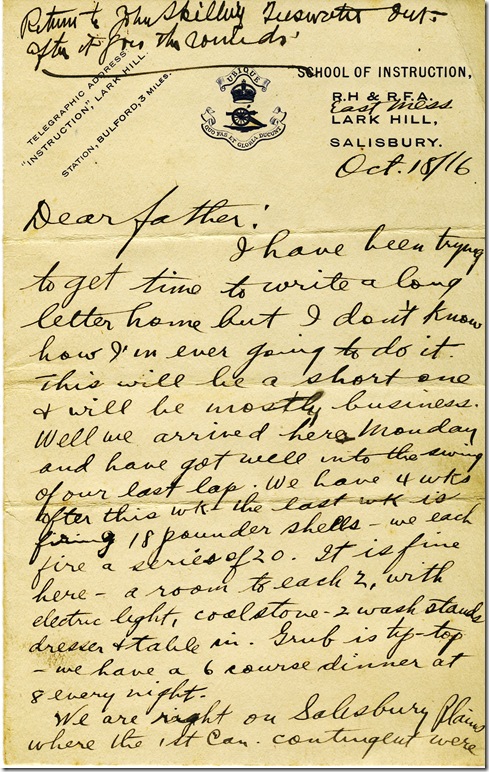 Return to John Skilling Teeswater Ont.
After it goes the rounds.
TELEGRAPHIC ADDRESS
"INSTRUCTION," LARK HILL.
STATION, BULFORD, 3 MILES.
UBIQUE
QUO FAS ET GLORIA DUCUNT
SCHOOL OF INSTRUCTION,
R.H & R.F.A.
East Mess
LARK HILL,
SALISBURY.
Oct. 18/16
Dear father:
I have been trying
to get time to write a long
letter home but I don't know
how I'm ever going to do it.
This will be a short one
& will be mostly business.
Well we arrived here Monday
and have got well into the swing
of our last lap. We have 4 wks
after this wk the last wk is
firing 18 pounder shells - we each
fire a series of 20. It is fine
here - a room to each 2, with
electric light, coalstove - 2 wash stands
dresser & table in. Grub is tip-top
- we have a 6 course dinner at
8 every night.
We are right on Salisbury Plains
where the 1st Can. contingent were